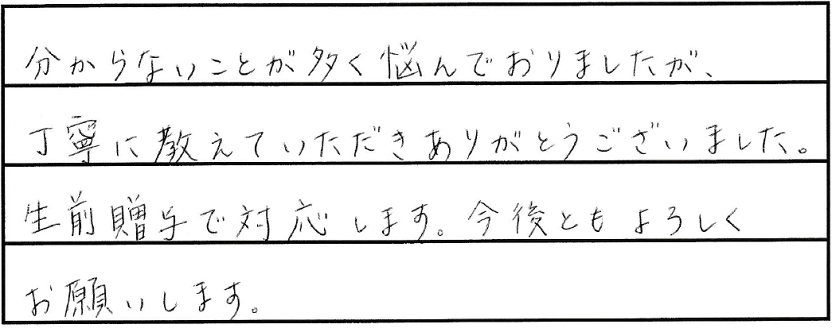 分からないことが多く悩んでおりましたが、
丁寧に教えていただきありがとうございました。
生前贈与で対応します。今後ともよろしく
お願いします。